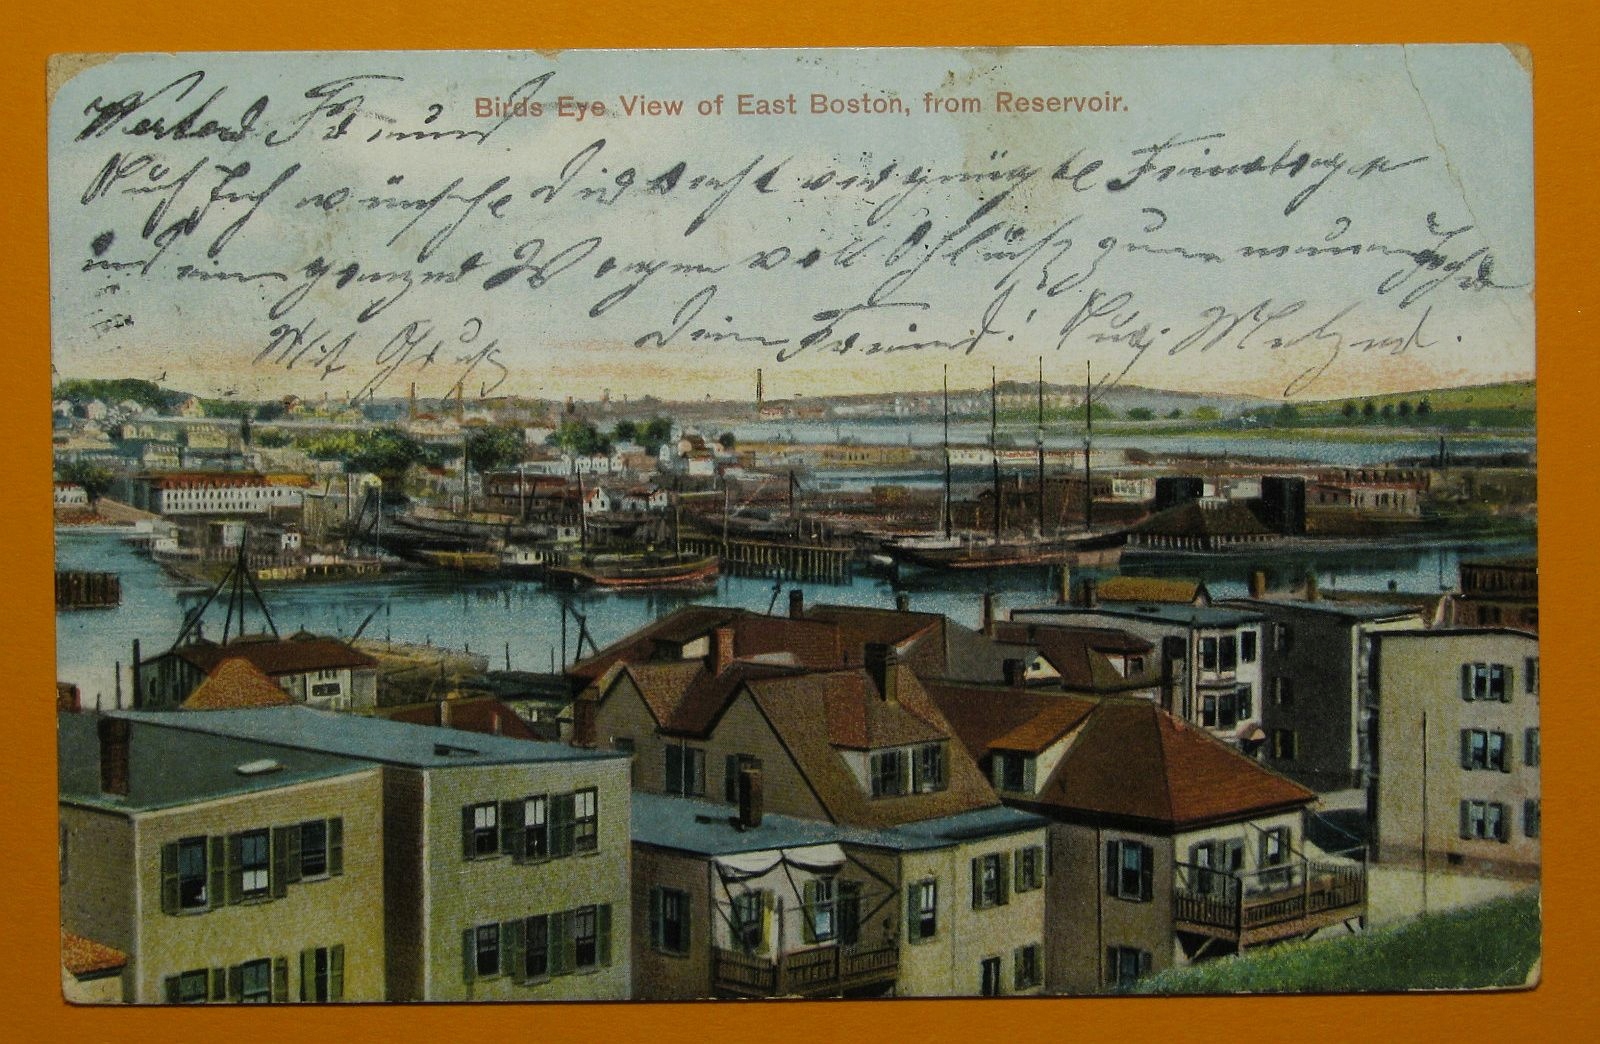 Birds Eye View of East Boston, from Reservoir.
Werter Freund
Auch Ich wünsche Dir recht vergnügte Feiertage
und einen ganzen Wagen voll Glück zum neuen Jahr
Mit Gruß Dein Freund! Aug. Metzger.